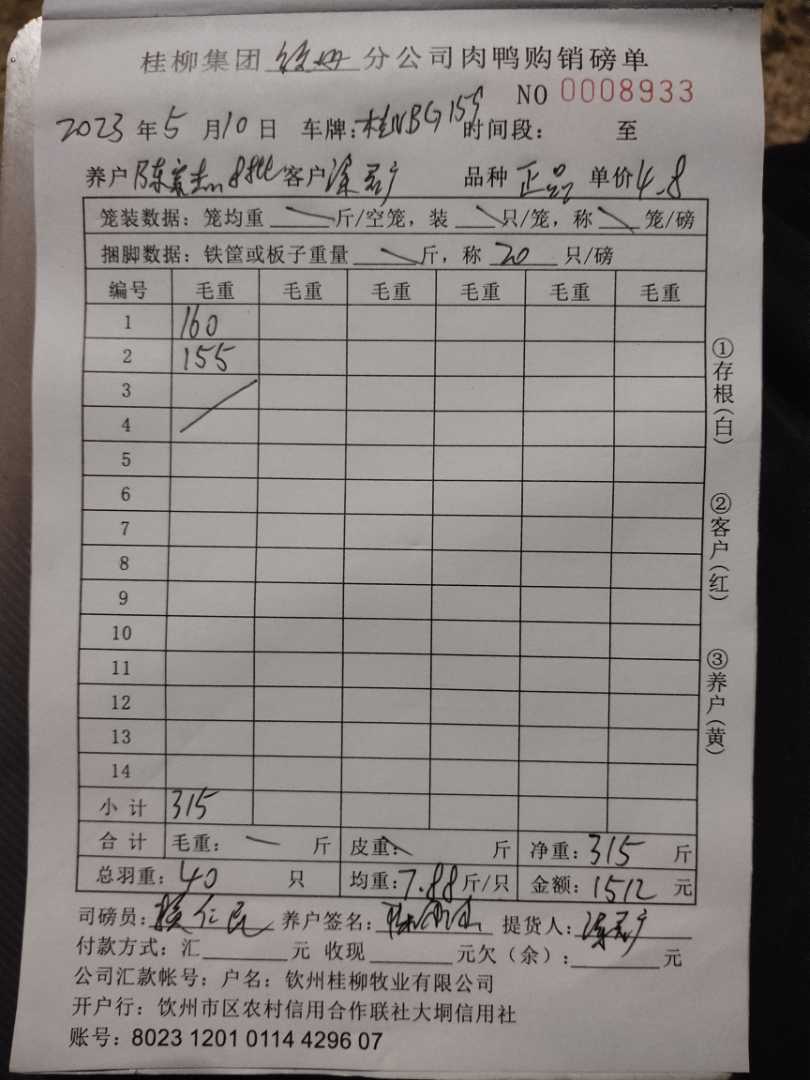 桂柳集团 分公司肉鸭购销磅单
NO 0008933
2023年5月10日 车牌:桂NBG159 时间段: 至
养户 陈 8批 客户 涂 品种 正品 单价 4.8
笼装数据:笼均重 斤/空笼,装 只/笼,称 笼/磅
捆脚数据:铁筐或板子重量 斤,称 20 只/磅
编号 毛重 毛重 毛重 毛重 毛重 毛重
1 160
2 155
3
4
5
6
7
8
9
10
11
12
13
14
小计 315
合计 毛重: 斤 皮重: 斤 净重:315 斤
总羽重:40 只 均重:7.88 斤/只 金额:1512 元
司磅员: 仁民 养户签名: 提货人:涂
付款方式:汇 元 收现 元欠(余): 元
公司汇款帐号:户名:钦州桂柳牧业有限公司
开户行:钦州市区农村信用合作联社大垌信用社
账号:8023 1201 0114 4296 07
①存根(白)
②客户(红)
③养户(黄)